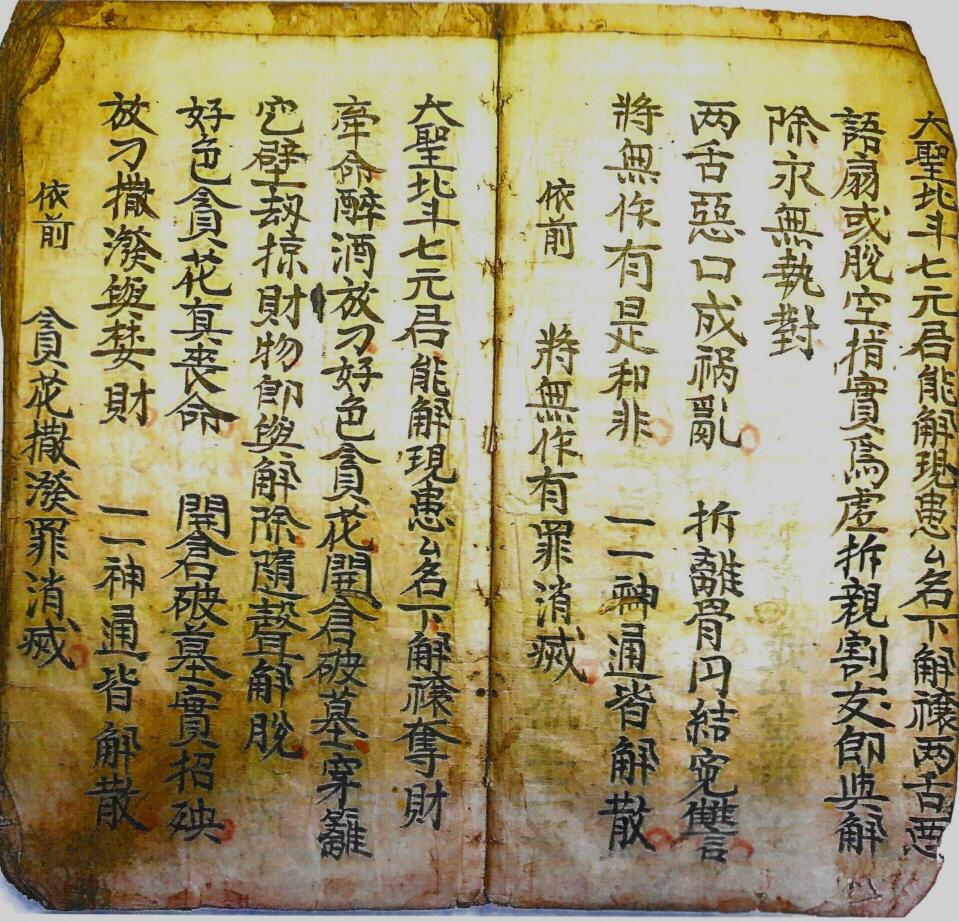 大聖北斗七元君能解現患厶名下解禳两舌惡
語扇或脱空指實為虚拆親割友即與解
除永無執對
两舌惡口成祸亂 折離骨肉結宽讐
將無作有是和非 一二神通皆解散
依前 將無作有罪消滅
大聖北斗七元君能解現患厶名下解禳奪財
牽命醉酒放刁好色貪花開倉破墓穿籬
穵壁刼掠財物即與解除隨聲解脱
好色貪花真丧命 開倉破墓實招殃
放刁撒潑與婪財 一二神通皆解散
依前 貪花撒潑罪消滅